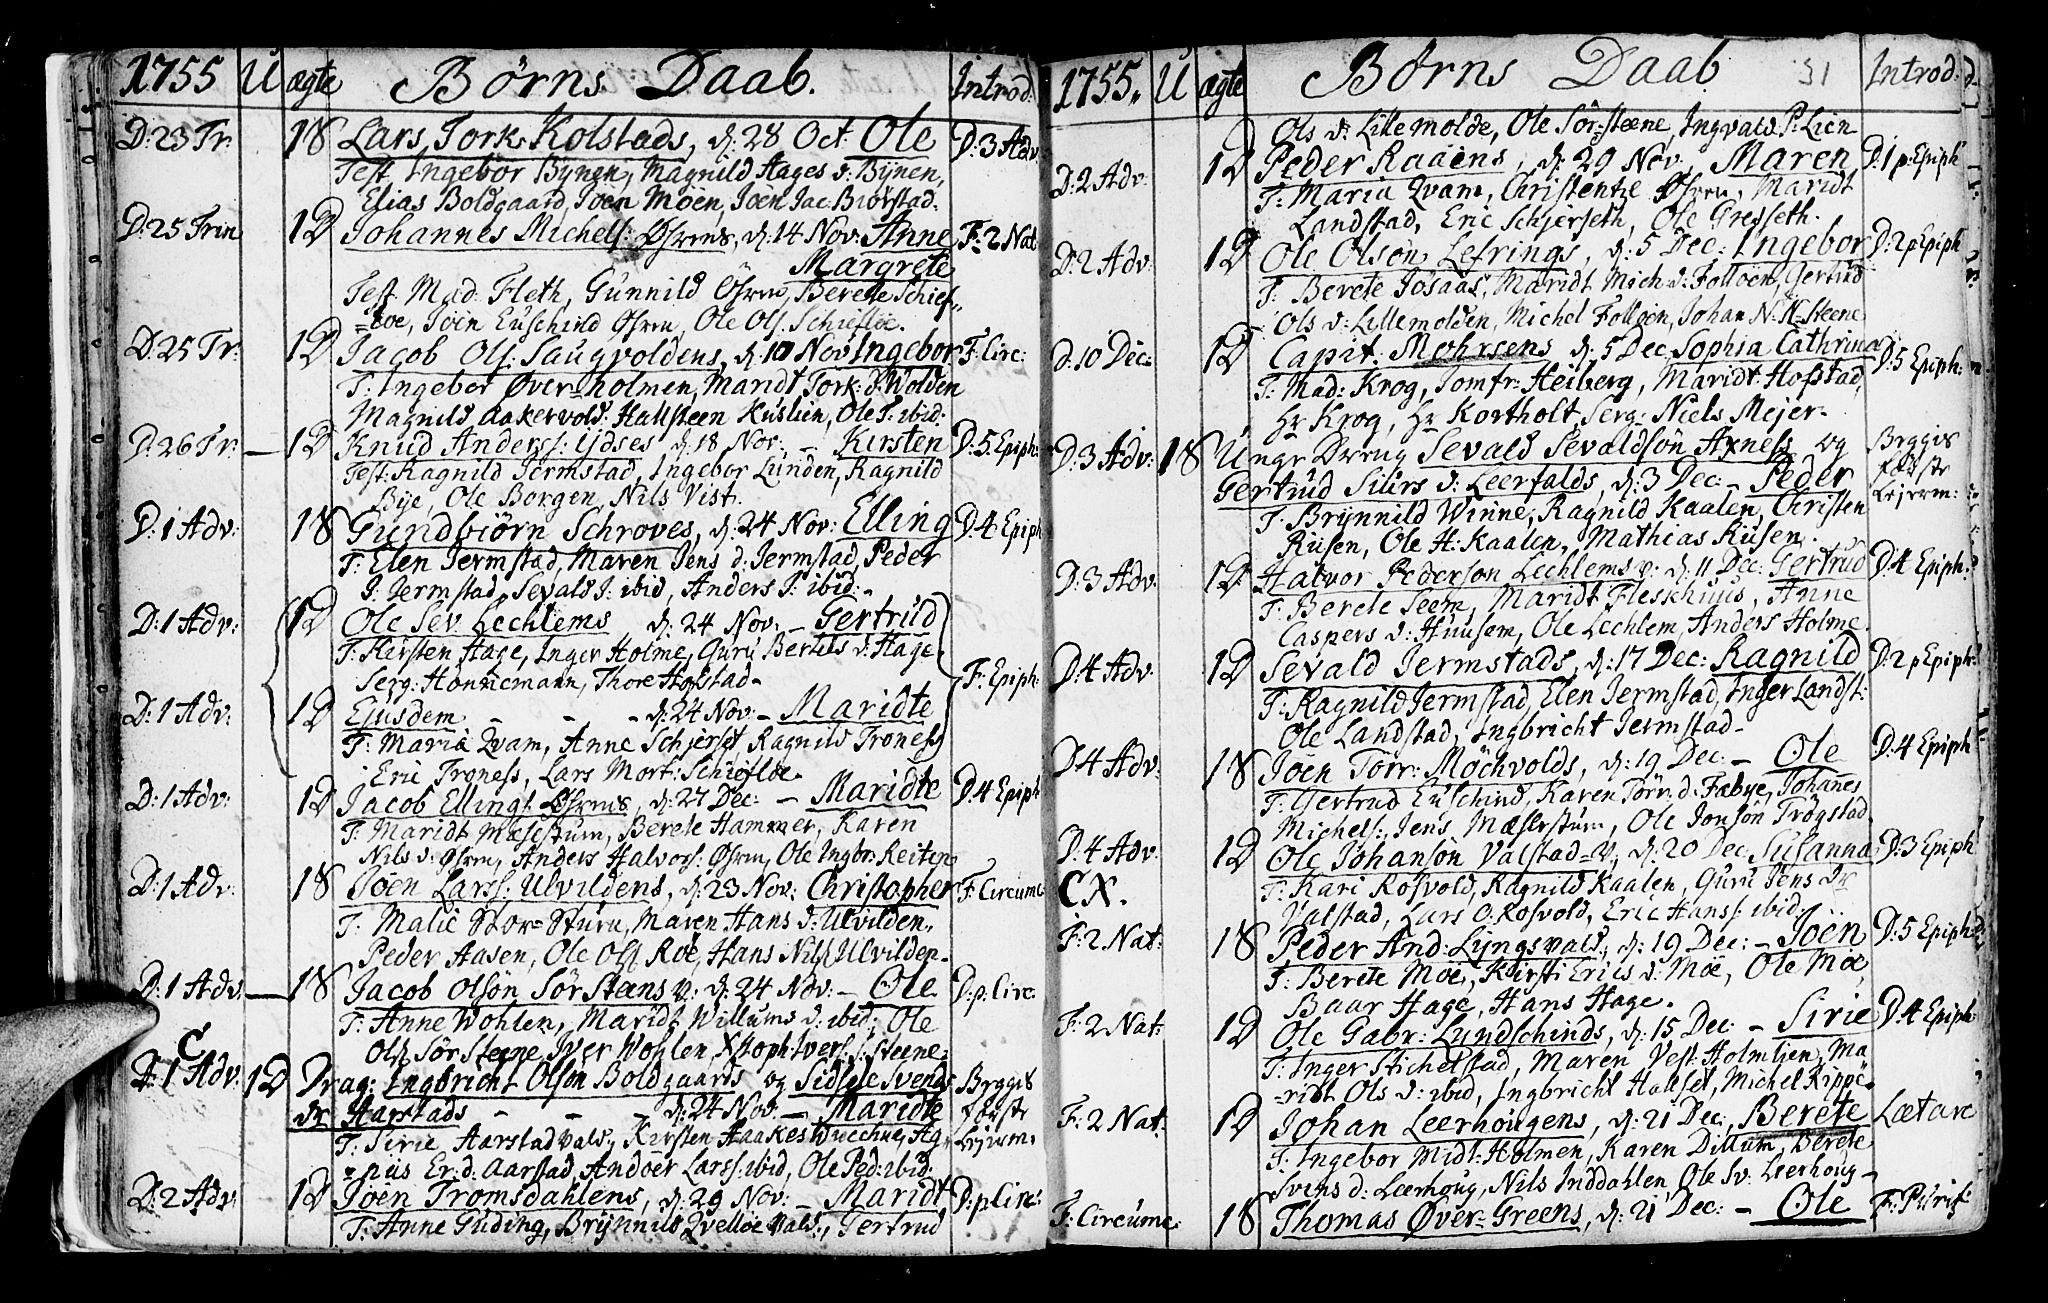 1755 U ægte Børns Daab. Introd:
D: 23 Tr: 1S Lars Tork: Kolstads, d: 28 Oct: Ole D: 3 Adv
Test: Ingebor Bynen, Magnild Hages d: Bynen,
Elias Boldgaard, Joen Moen, Joen Jac: Biørstad.
D: 25 Trin 1D Johannes Michels: Øfrens, d: 14 Nov: Anne F: 2 Nat:
Margrete
Test: Mad: Fleth, Gunnild Øfren, Berete Schief-
=loe, Joen Euschind Øfren, Ole Ols: Schiefloe.
D: 25 Tr: 1D Jacob Ols: Saugvoldens, d: 10 Nov Ingebor F: Circ:
T: Ingebor Øver-holmen, Maridt Tork: d: Wolden
Magnild Aakervold, Hallsteen Kuslien, Ole T: ibid:
D: 26 Tr: 1D Knud Anderss: Ydses d: 18 Nov: - Kirsten D: 5. Epiph:
Test: Ragnild Jermstad, Ingebor Lunden, Ragnild
Bye, Ole Borgen, Nils Vist.
D: 1 Adv: 1S Gundbiørn Schroves, d: 24 Nov: Elling D: 4 Epiph
T: Elen Jermstad, Maren Jens d: Jermstad, Peder
J: Jermstad, Sevald J: ibid, Anders J: ibid:
D: 1 Adv: 1D Ole Sev: Lechlems d: 24 Nov: - Gertrud
T: Kirsten Hage, Inger Holme, Guru Bertels d: Hage
Serg: Honnemann, Thore Hofstad- F: Epiph:
D: 1 Adv: 1D Ejusdem - - - d: 24 Nov: - Maridte
T: Maria Qvam, Anne Schjerset, Ragnild Troness
Eric Troness, Lars Mort: Schiefloe.
D: 1 Adv: 1D Jacob Ellings: Øfrens, d: 27 Dec: - Maridte D: 4 Epiph
T: Maridt Mæsestum, Berete Hammer, Karen
Nils d: Øfren, Anders Halvors: Øfren, Ole Ingbr: Reiten
D: 1 Adv: 1S Joen Larss: Ulvildens, d: 23 Nov: Christopher F: Circume
T: Malie Stor=Sturn, Maren Hans d: Ulvilden,
Peder Aasen, Ole Ols Roe, Hans Nils Ulvilden-
D: 1 Adv 1S Jacob Olsøn Sør Steens v: d: 24 Nov: - Ole D: p: Circ.
T: Anne Wohlen, Maridt Willums d: ibid, Ole
Ols Sør Steene, Iver Wohlen, Xstoph: Ivers: S: steene:
C
D: 1 Adv: 1D Drag: Ingbricht Olsøn Boldgaards og Sidsele Svends Bygges
dr Aarstads - - - d: 24 Nov: - Maridte første
T: Sirie Aarstadvald, Kirsten Haakes Wuchue, Ag- Lejerm:
=nus Er: d: Aarstad, Andoer Larss: ibid, Ole Ped: ibid:
D: 2 Adv: 1D Joen Tromsdahlens, d: 29 Nov: - Maridt D: p Circ:
T: Anne Guding, Brynnild Qvelloe vald, Gertrud
1755. U ægte Børns Daab 31 Introd:
Ols d: Lillemolde, Ole Sør-steene, Ingvald P: Lien
D: 2 Adv: 1D Peder Raaens, d: 29 Nov: Maren D: 1 p: Epiph
T: Maria Qvam, Christentze Øfren, Maridt
Landstad, Eric Schjerseth, Ole Gresseth.
D: 2 Adv: 1D Ole Olsøn Lefrings, d: 5 Dec: Ingebor D: 2 p Epiph
T: Berete Josaas, Maridt Mich d: Folloen, Gertrud
Ols d: Lillemolden, Michel Folloen, Johan N: N: Steene
D: 10 Dec: 1D Capit: Mohrsens d: 5 Dec, Sophia Cathrina D: 5 Epiph:
T: Mad: Krog, Jomfr: Heiberg, Maridt Hofstad,
Hr Krog, Hr Kortholt, Serg: Niels Mejer.
D: 3 Adv: 1S Unge Dreng Sevald Sevaldsøn Axness og Bygges
Gertrud Siurs d: Leerfalds, d: 3 Dec: - Peder første
T: Brynnild Winne, Ragnild Kaalen, Christen Lejerm:
Riisen, Ole H: Kaalen, Mathias Riisen.
D: 3 Adv: 1D Halvor Pedersøn Lechlems v: d: 11 Dec: Gertrud D: 4 Epiph:
T: Berete Seem, Maridt Fleskhuus, Anne
Caspers d: Huusem, Ole Lechlem, Anders Holme.
D: 4 Adv: 1D Sevald Jermstads, d: 17 Dec: Ragnild D: 2 p Epiph:
T: Ragnild Jermstad, Elen Jermstad, Inger Landst:
Ole Landstad, Ingbricht Jermstad-
D: 4 Adv: 1S Joen Torr: Möchvolds, d: 19 Dec: - Ole D: 4 Epiph
T: Gertrud Euschind, Karen Torr: d: Fæbye, Johanes
Michels:, Jens Mæserstum, Ole Jonsøn Trögstad
D: 4 Adv: 1D Ole Johansøn Valstad=v, d: 20 Dec Susanna D: 3 Epiph
CX. T: Kari Rosvold, Ragnild Kaalen, Guru Jens dr
Valstad, Lars O: Rosvold, Eric Hanss: ibid:
F: 2 Nat: 1S Peder And: Lyngsvald, d: 19 Dec: - Joen D: 5 Epiph:
T: Berete Moe, Kirsti Erics d: Moe, Ole Moe,
Baar Hage, Hans Hage.
F: 2 Nat: 1D Ole Gabr: Lundschinds, d: 15 Dec: - Sirie D: 4 Epiph:
T: Inger Stichelstad, Maren Vest: Holmlien, Ma
=ridt Ols d: ibid, Ingbricht Hallset, Michel Rippe
F: 2 Nat: 1D Johan Leerhougens, d: 21 Dec: Berete Lætare
T: Ingebor Midt-Holmen, Karen Dillum, Berete
Svens d: Leerhoug, Nils Inddahlen Ole Sv: Leerhoug-
F: Circume: 1S Thomas Øver-Greens, d: 21 Dec: - Ole F: Purif: